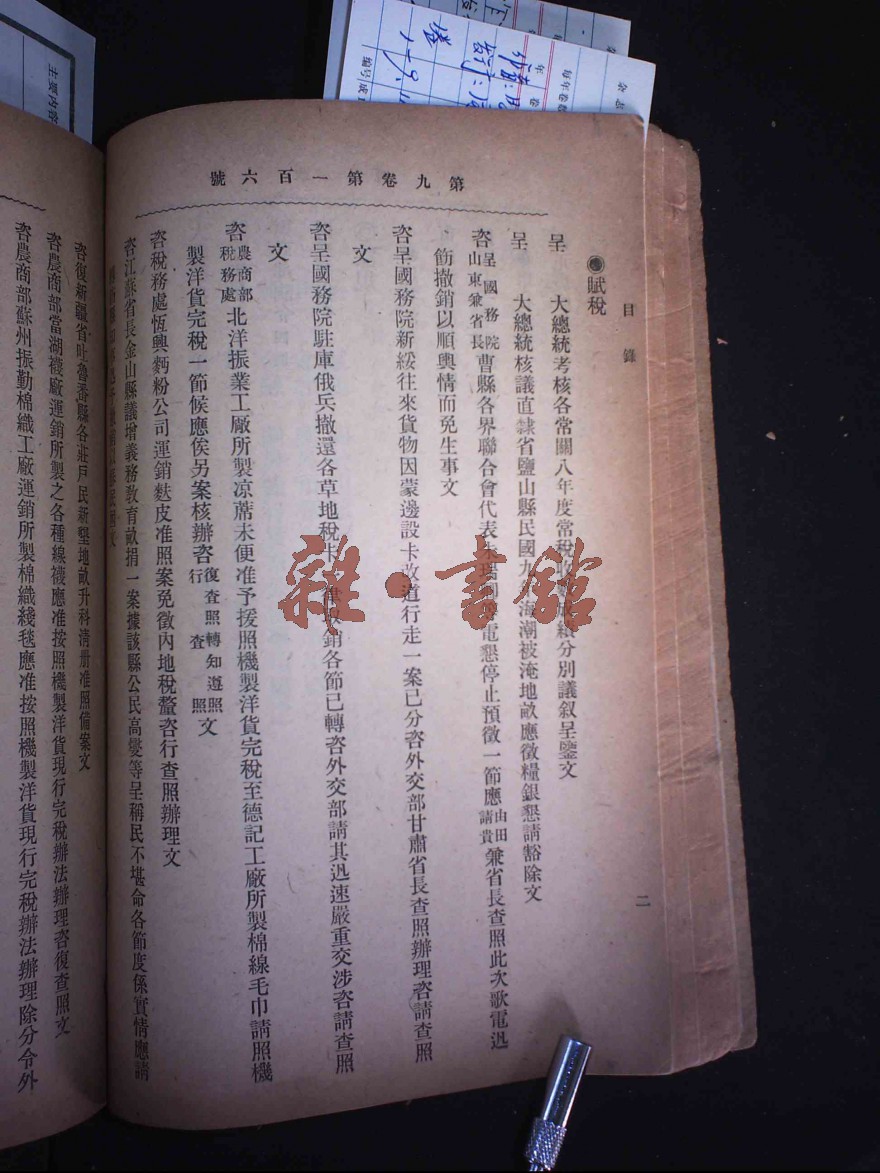 第九卷第一百六號
目錄
二
●賦稅
呈 大總統考核各常關八年度常稅收分別議敘呈鑒文
呈 大總統核議直隸省鹽山縣民國九海潮被淹地畝應徵糧銀懇請豁除文
咨呈國務院山東兼省長曹縣各界聯合會代表電懇停止預徵一節應由田請貴兼省長查照此次歌電迅
飭撤銷以順輿情而免生事文
咨呈國務院新綏往來貨物因蒙邊設卡改道行走一案已分咨外交部甘肅省長查照辦理咨請查照
文
咨呈國務院駐庫俄兵撤還各草地稅卡銷各節已轉咨外交部請其迅速嚴重交涉咨請查照
文
咨農商部稅務處北洋振業工廠所製凉蓆未便准予援照機製洋貨完稅至德記工廠所製棉線毛巾請照機
製洋貨完稅一節候應俟另案核辦咨復查照轉知遵照行查照文
咨稅務處恆興麪粉公司運銷麩皮准照案免徵內地稅釐咨行查照辦理文
咨江蘇省長金山縣議增義務教育畝捐一案據該縣公民高燮等呈稱民不堪命各節度係實情應請
咨復新疆省吐魯番縣各莊戶民新墾地畝升科清册准照備案文
咨農商部當湖襪廠運銷所製之各種線襪應准按照機製洋貨現行完稅辦法辦理咨復查照文
咨農商部蘇州振勤棉織工廠運銷所製棉織綫毯應准按照機製洋貨現行完稅辦法辦理除分令外
雜·書館
主要内容
每年卷数
编号